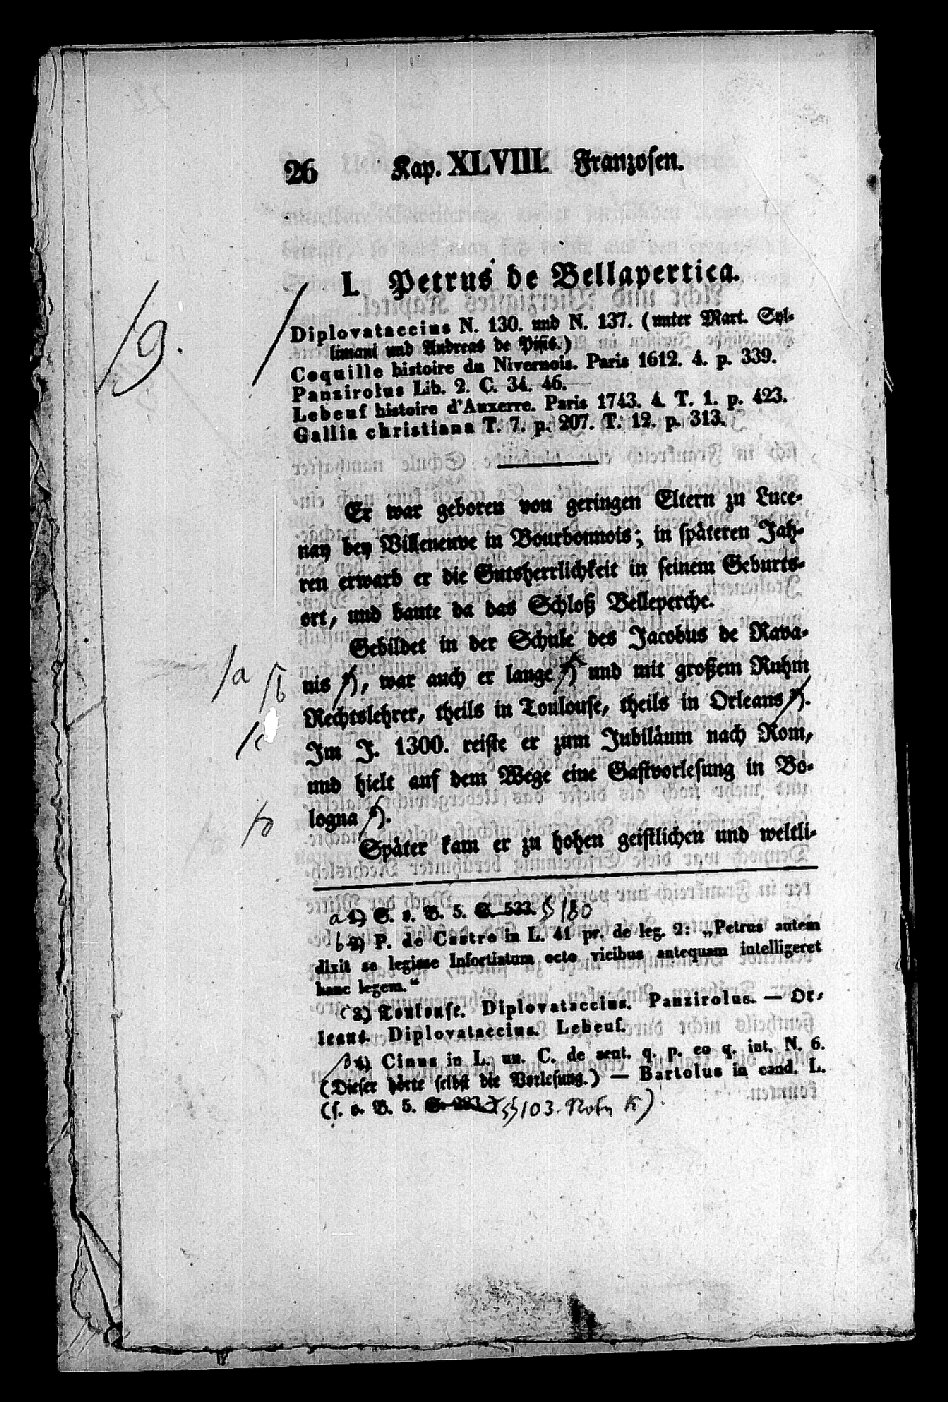 26 Kap. XLVIII. Franzosen.
I. Petrus de Bellapertica.
9.
Diplovataccius N. 130. und N. 137. (unter Mart. Syl-
limani und Andreas de Pisis.)
Coquille histoire du Nivernois. Paris 1612. 4. p. 339.
Panzirolus Lib. 2. C. 34. 46.
Lebeuf histoire d'Auxerre. Paris 1743. 4. T. 1. p. 423.
Gallia christiana T. 7. p. 207. T. 12. p. 313.
Er war geboren von geringen Eltern zu Luce-
nay bey Villeneuve in Bourbonnois; in späteren Jah-
ren erwarb er die Gutsherrlichkeit in seinem Geburts-
ort, und baute da das Schloß Belleperche.
Gebildet in der Schule des Jacobus de Rava-
/a /b nis ), war auch er lange ) und mit großem Ruhm
Rechtslehrer, theils in Toulouse, theils in Orleans ).
/c Im J. 1300. reiste er zum Jubiläum nach Rom,
und hielt auf dem Wege eine Gastvorlesung in Bo-
/d logna ).
Später kam er zu hohen geistlichen und weltli-
a 1) S. o. B. 5. S. 533. § 180
b 2) P. de Castro in L. 41 pr. de leg. 2: „Petrus autem
dixit se legisse Infortiatum octo vicibus antequam intelligeret
hanc legem.“
c 3) Toulouse. Diplovataccius. Panzirolus. — Or-
leans. Diplovataccius. Lebeuf.
/d 4) Cinus in L. un. C. de sent. q. p. eo q. int. N. 6.
(Dieser hörte selbst die Vorlesung.) — Bartolus in eand. L.
(s. o. B. 5. S. 283.) § 103. Note k)